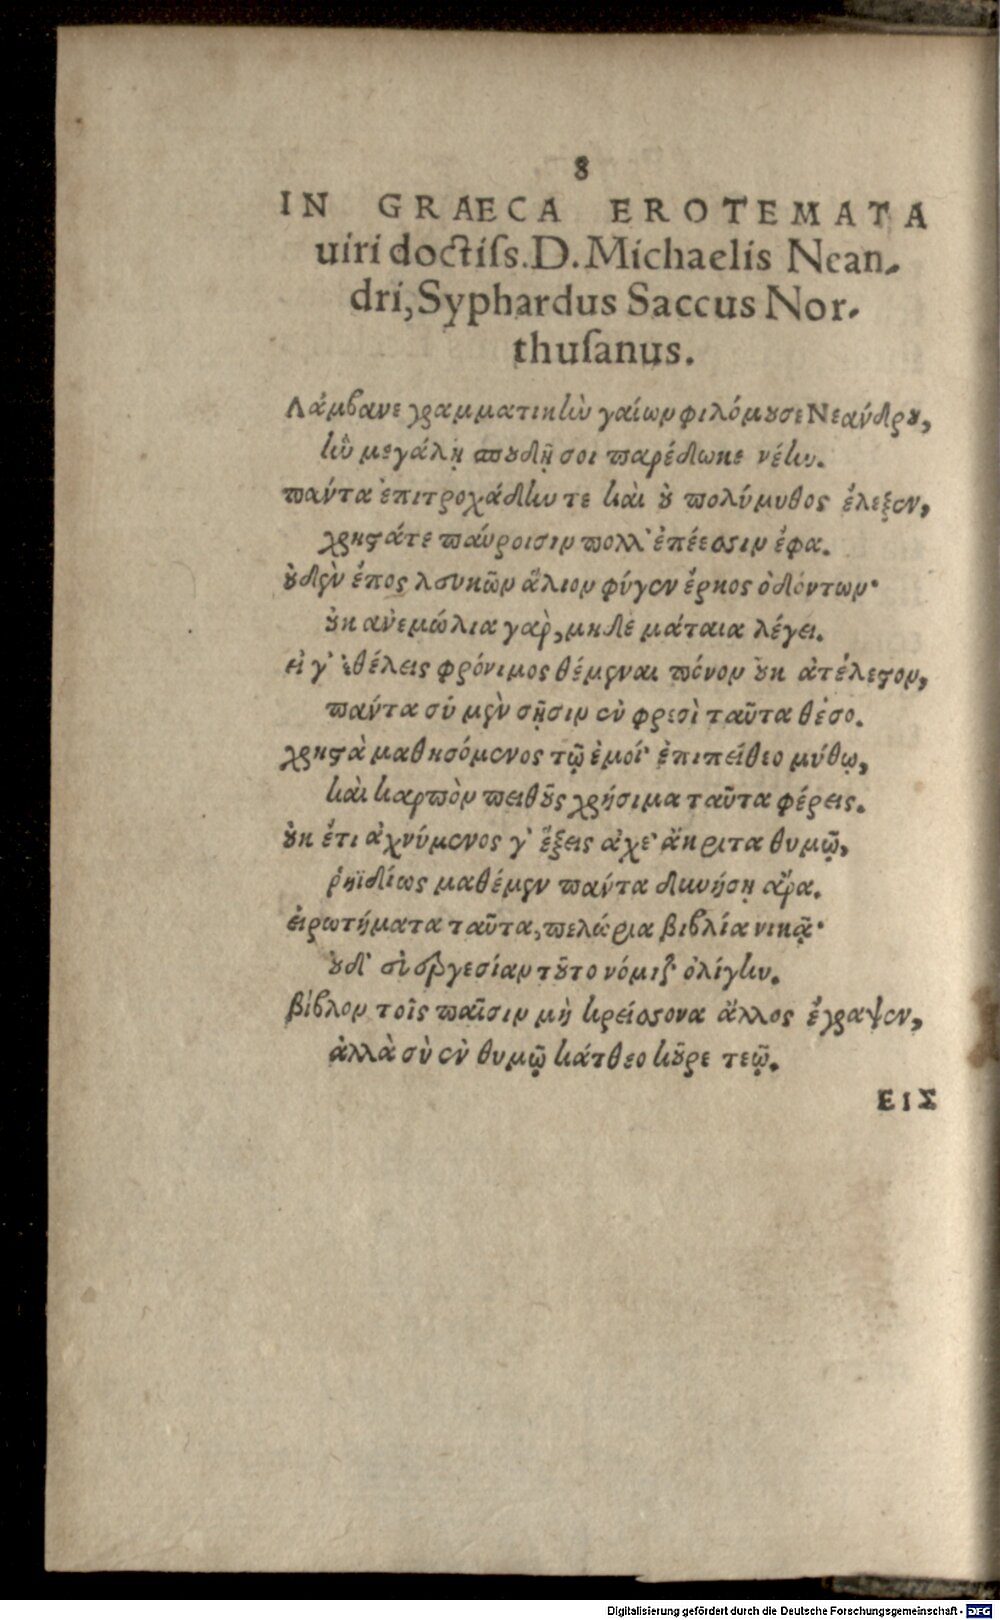 8
IN GRAECA EROTEMATA
uiri doctiſs. D. Michaelis Nean-
dri, Syphardus Saccus Nor-
thuſanus.
Λάμβανε γραμματικὴν γαίων φιλόμουσε Νεάνδρου,
ἣν μεγάλῃ σπουδῇ σοι παρέδωκε νέην.
πάντα ἐπιτροχάδην τε καὶ οὐ πολύμυθος ἔλεξεν,
χρηστά τε παύροισιν πολλ' ἐπέεσσιν ἔφα.
οὐδὲν ἔπος λευκῶν ἅλιον φύγεν ἕρκος ὀδόντων·
οὐκ ἀνεμώλια γὰρ, μηδὲ μάταια λέγει.
εἰ γ' ἐθέλεις φρόνιμος θέμεναι πόνον οὐκ ἀτέλεστον,
πάντα σύ μὲν σῇσιν ἐν φρεσὶ ταῦτα θέσο.
χρηστὰ μαθησόμενος τῷ ἐμοί' ἐπιπείθεο μύθῳ,
καὶ καρπὸν πειθοῦς χρήσιμα ταῦτα φέρεις.
οὐκ ἔτι ἀχνύμενος γ' ἕξεις ἄχε' ἄκριτα θυμῷ,
ῥηϊδίως μαθέμεν πάντα δυνήσῃ ἄρα.
εἰρωτήματα ταῦτα, πελώρια βιβλία νικᾷ·
οὐδ' εὐεργεσίαν τοῦτο νόμιζ' ὀλίγην.
βίβλον τοῖς παῖσιν μὴ κρείσσονα ἄλλος ἔγραψεν,
ἀλλὰ σὺ ἐν θυμῷ κάτθεο κοῦρε τεῷ.
ΕΙΣ
Digitalisierung gefördert durch die Deutsche Forschungsgemeinschaft - DFG